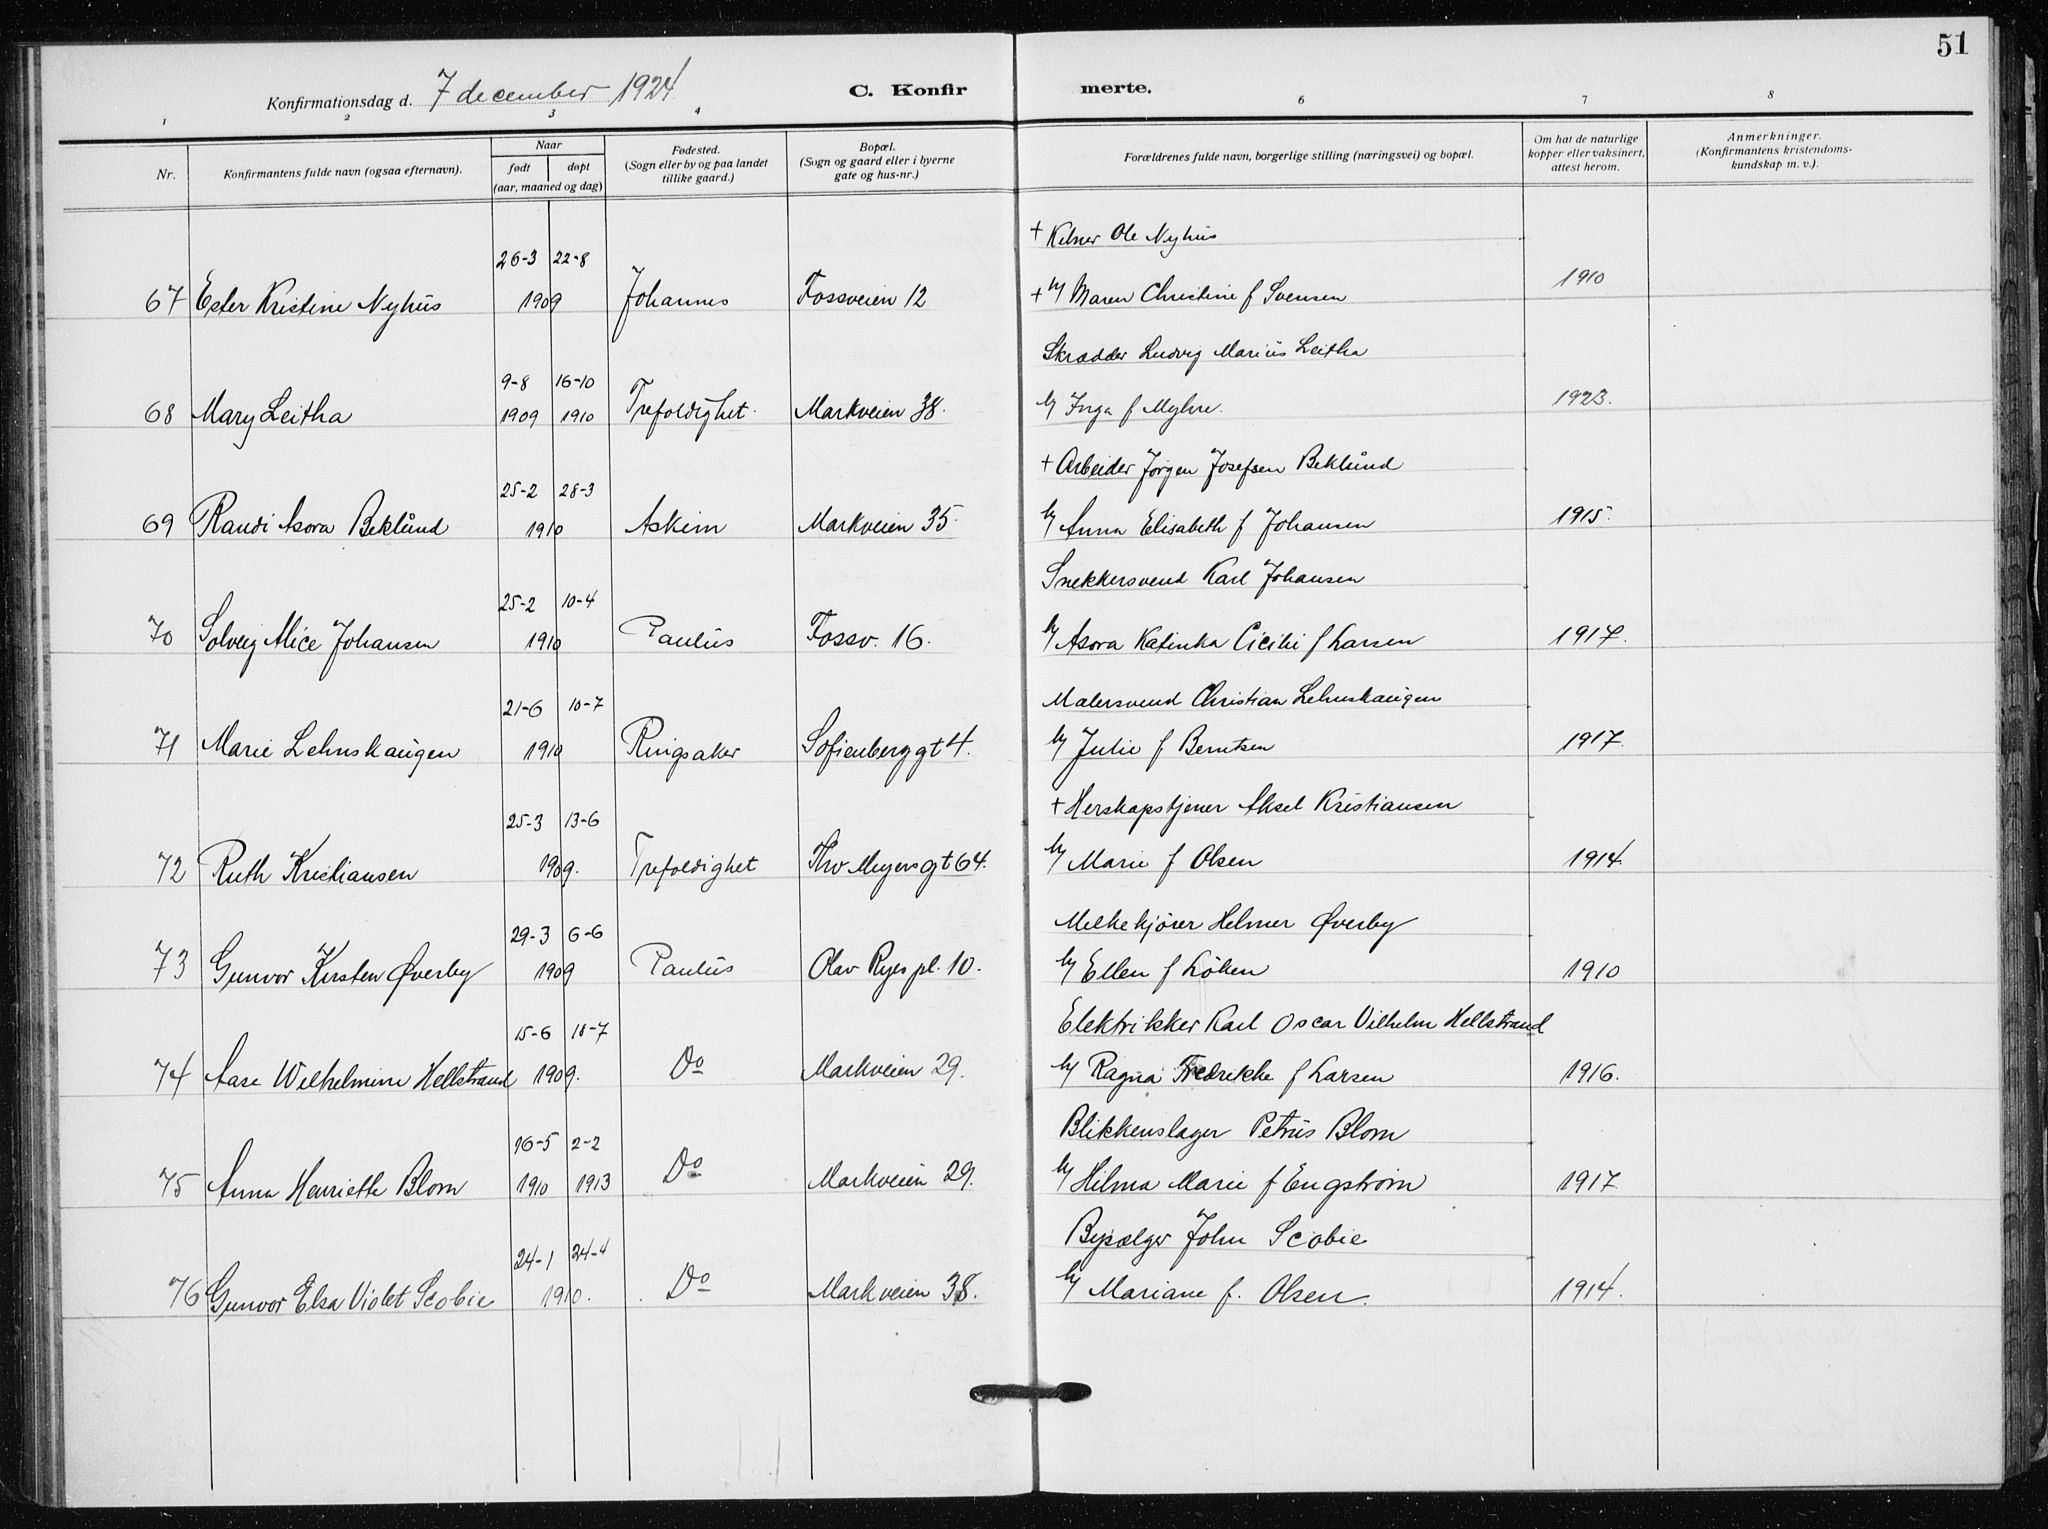 51
Konfirmationsdag d. 7 december 1924 C. Konfirmerte.
1 2 3 4 6 7 8
Nr. Konfirmantens fulde navn (ogsaa efternavn). Naar født døpt (aar, maaned og dag) Fødested. (Sogn eller by og paa landet tillike gaard.) Bopæl. (Sogn og gaard eller i byerne gate og hus-nr.) Forældrenes fulde navn, borgerlige stilling (næringsvei) og bopæl. Om hat de naturlige kopper eller vaksinert, attest herom. Anmerkninger. (Konfirmantens kristendomskundskap m. v.).
26-3 22-8 + Kelner Ole Nyhus
67 Ester Kristine Nyhus 1909 Johannes Fossveien 12 + h/ Maren Christine f Svensen 1910
9-8 16-10 Skrædder Ludvig Marius Leitha
68 Mary Leitha 1909 1910 Trefoldighet. Markveien 38. h/ Inga f Myhre. 1923.
25-2 28-3 + Arbeider Jørgen Josefsen Beklund
69 Randi Asora Beklund 1910 Askim Markveien 35. h/ Anna Elisabeth f Johansen 1915.
25-2 10-4 Snekkersvend Karl Johansen
70 Solveig Alice Johansen 1910 Paulus Fossv. 16. h/ Asora Katinka Cicilie f Larsen 1917.
21-6 10-7 Malersvend Christian Lehnskaugen
71 Marie Lehnskaugen 1910 Ringsaker Sofienberggt 4. h/ Julie f Berntsen 1917.
25-3 13-6 + Herskapstjener Aksel Kristiansen
72 Ruth Kristiansen 1909. Trefoldighet Thv Meyersgt 64. h/ Marie f Olsen 1914.
29-3 6-6 Melkekjører Helmer Øverby
73 Gunvor Kirsten Øverby 1909 Paulus Olav Ryes pl. 10. h/ Ellen f Løken 1910
15-6 18-7 Elektrikker Karl Oscar Vilhelm Hellstrand
74 Aase Wilhelmine Hellstrand 1909. Do Markveien 29. h/ Ragna Fredrikke f Larsen 1916.
16-5 2-2 Blikkenslager Petrus Blom
75 Anna Henriette Blom 1910 1913 Do Markveien 29. h/ Hilma Marie f Engstrøm 1917.
24-1 24-4 Bysælger John Scobie
76 Gunvor Elsa Violet Scobie 1910. Do Markveien 38. h/ Mariane f. Olsen. 1914.